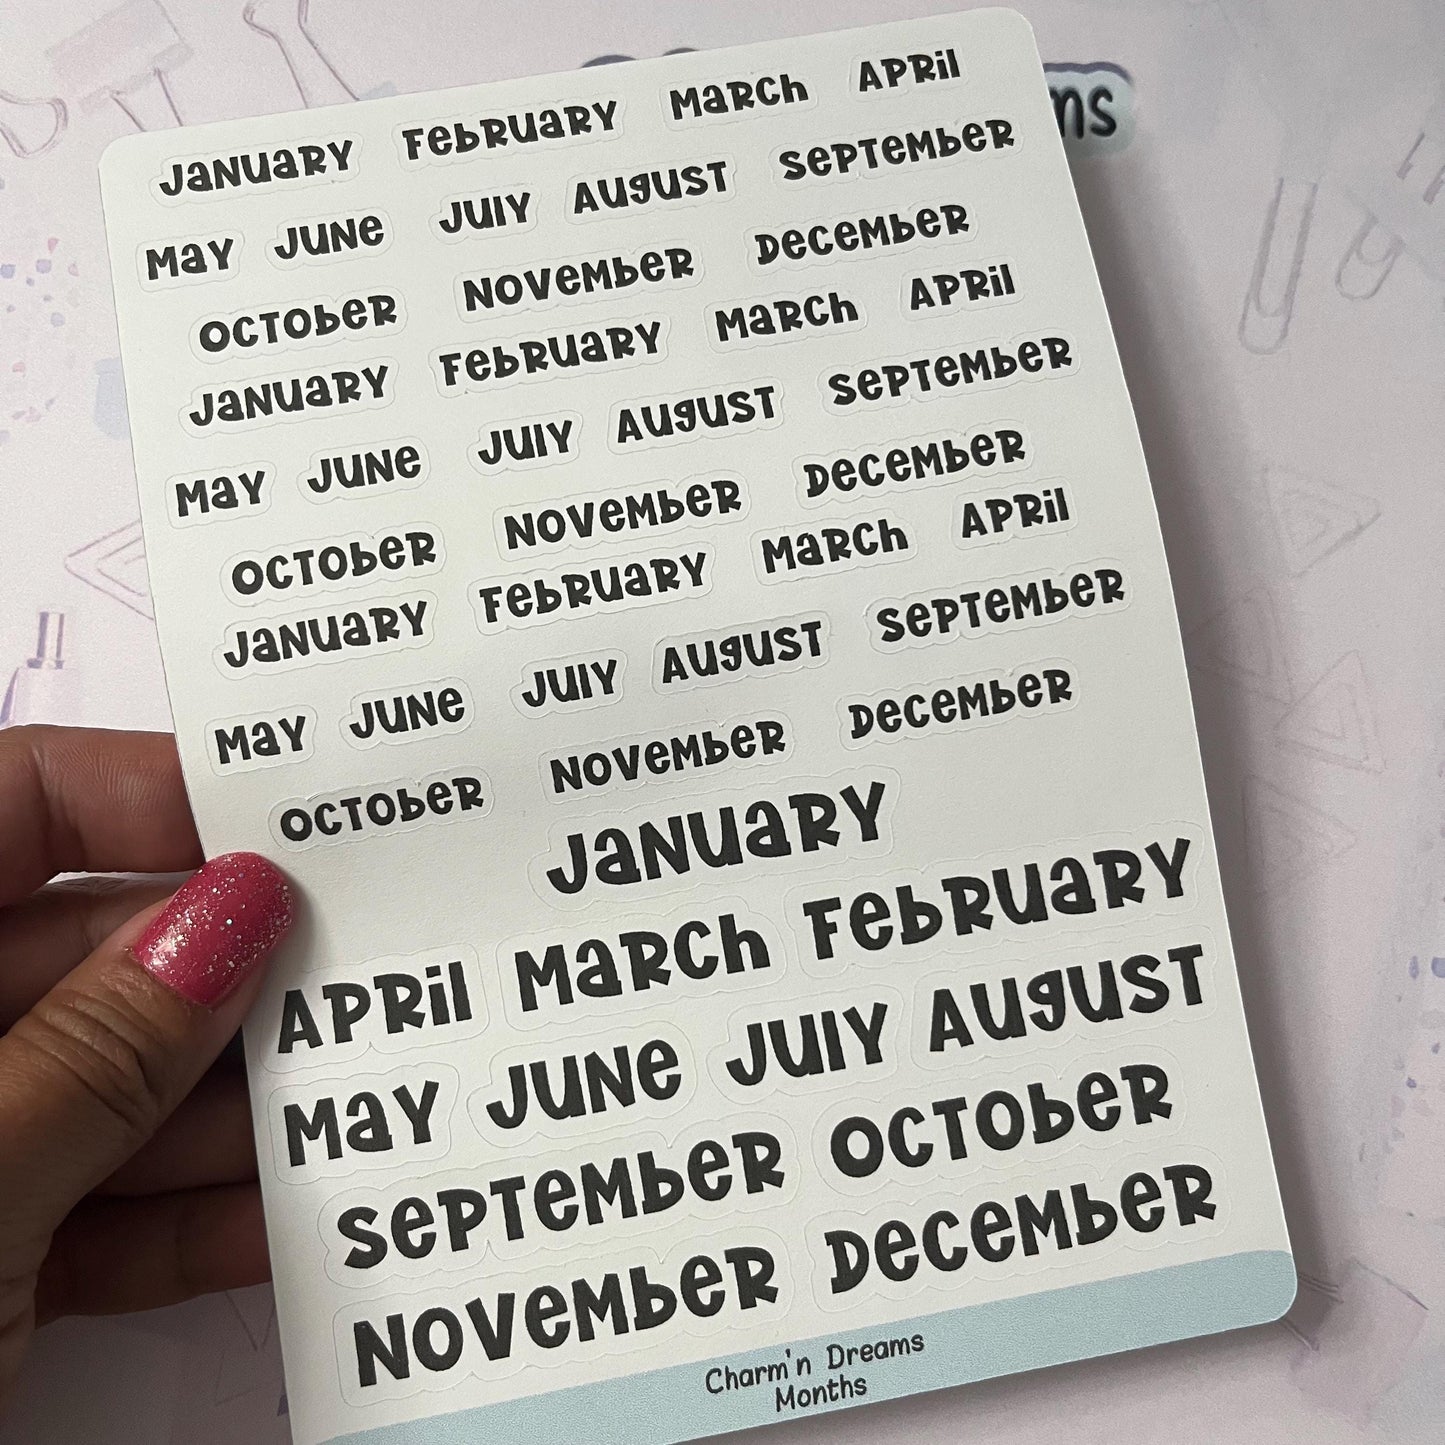 JaNUaRY FebRUaRY MaRCh APRil
MaY JUNe JUlY AUgUST SePTeMbeR
OCTObeR NOVeMbeR DeCeMbeR
JaNUaRY FebRUaRY MaRCh APRil
MaY JUNe JUlY AUgUST SePTeMbeR
OCTObeR NOVeMbeR DeCeMbeR
JaNUaRY FebRUaRY MaRCh APRil
MaY JUNe JUlY AUgUST SePTeMbeR
OCTObeR NOVeMbeR DeCeMbeR
JaNUaRY
APRil MaRCh FebRUaRY
MaY JUNe JUlY AUgUST
SePTeMbeR OCTObeR
NOVeMbeR DeCeMbeR
Charm'n Dreams
Months